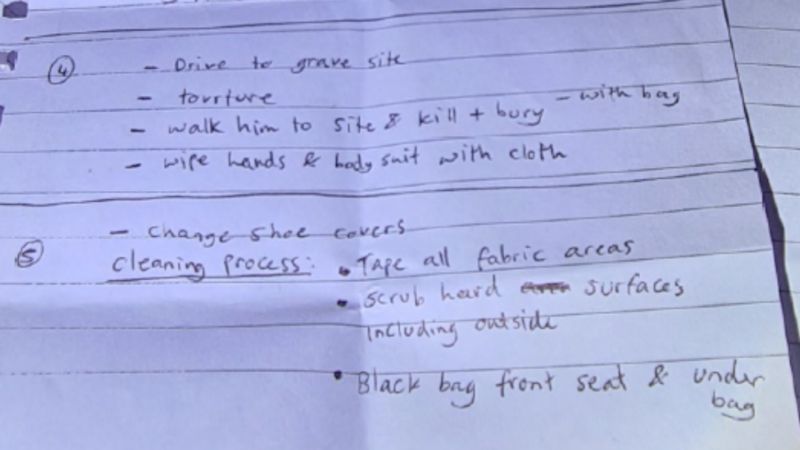 ④ - Drive to grave site
- tourture
- walk him to site & kill + bury - with bag
- wipe hands & body suit with cloth
⑤ - change shoe covers
cleaning process: • Tape all fabric areas
• scrub hard surfaces
including outside
• Black bag front seat & under
bag